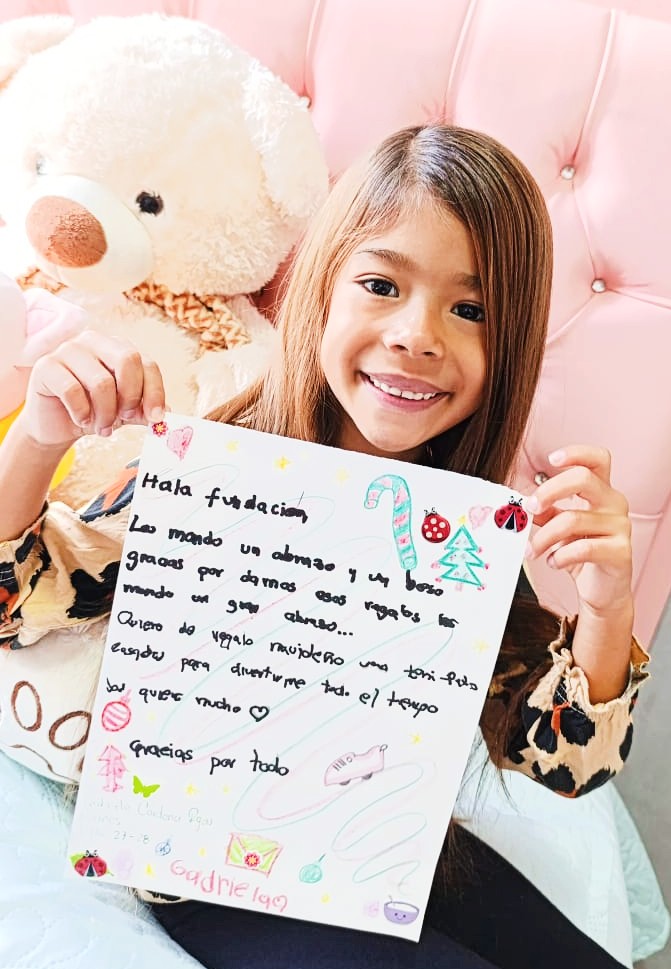 Hala fundacion
Les mando un abrazo y un beso
gracias por darnos esos regalos les
mando un gran abraso...
Quiero de regalo navideño unos
para divertirme todo el tiempo
los quiero mucho
Gracias por todo
Cardona
27-28
Gadriela